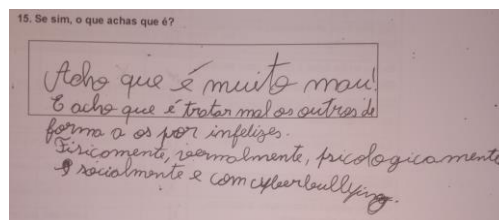 15. Se sim, o que achas que é?
Acho que é muito mau!
E acho que é tratar mal os outros de
forma a os por infelizes.
Fisicomente, vermalmente, psicologicamente
socialmente e com cyberbullying.